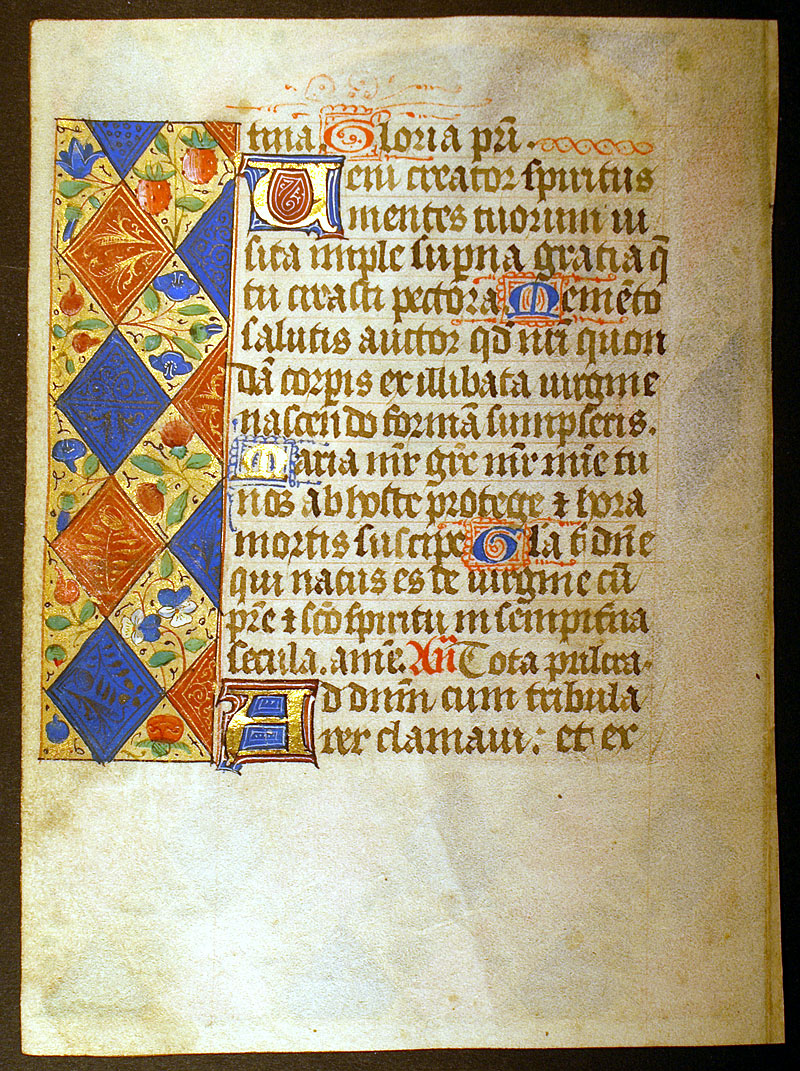 tina. Gloria pr̄i.
Veni creator spiritus
mentes tuorum ui
sita imple sup̄na gratia q̄
tu creasti pectora Memēto
salutis auctor qd̄ nr̄i quon
dā corp̄is ex illibata uirgine
nascendo formā sumpseris.
Maria mr̄ gr̄e mr̄ mīe tu
nos ab hoste protege ⁊ hora
mortis suscipe Gl̄a t̄ dn̄e
qui natus es de uirgine cū
pr̄e ⁊ sc̄o spiritu in sempit̄na
secula. amē. An̄ Tota pulcra.
Ad dnm̄ cum tribula
rer clamaui: et ex